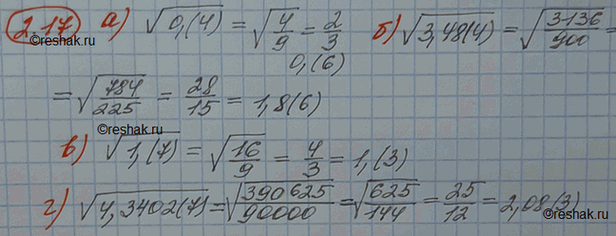 2.17 а) √0,(4) = √4/9 = 2/3 б) √3,48(4) = √3136/900 =
0,(6)
©reshak.ru
= √784/225 = 28/15 = 1,8(6)
©reshak.ru
в) √1,(7) = √16/9 = 4/3 = 1,(3)
г) √4,3402(7) = √390625/90000 = √625/144 = 25/12 = 2,08(3)
©reshak.ru